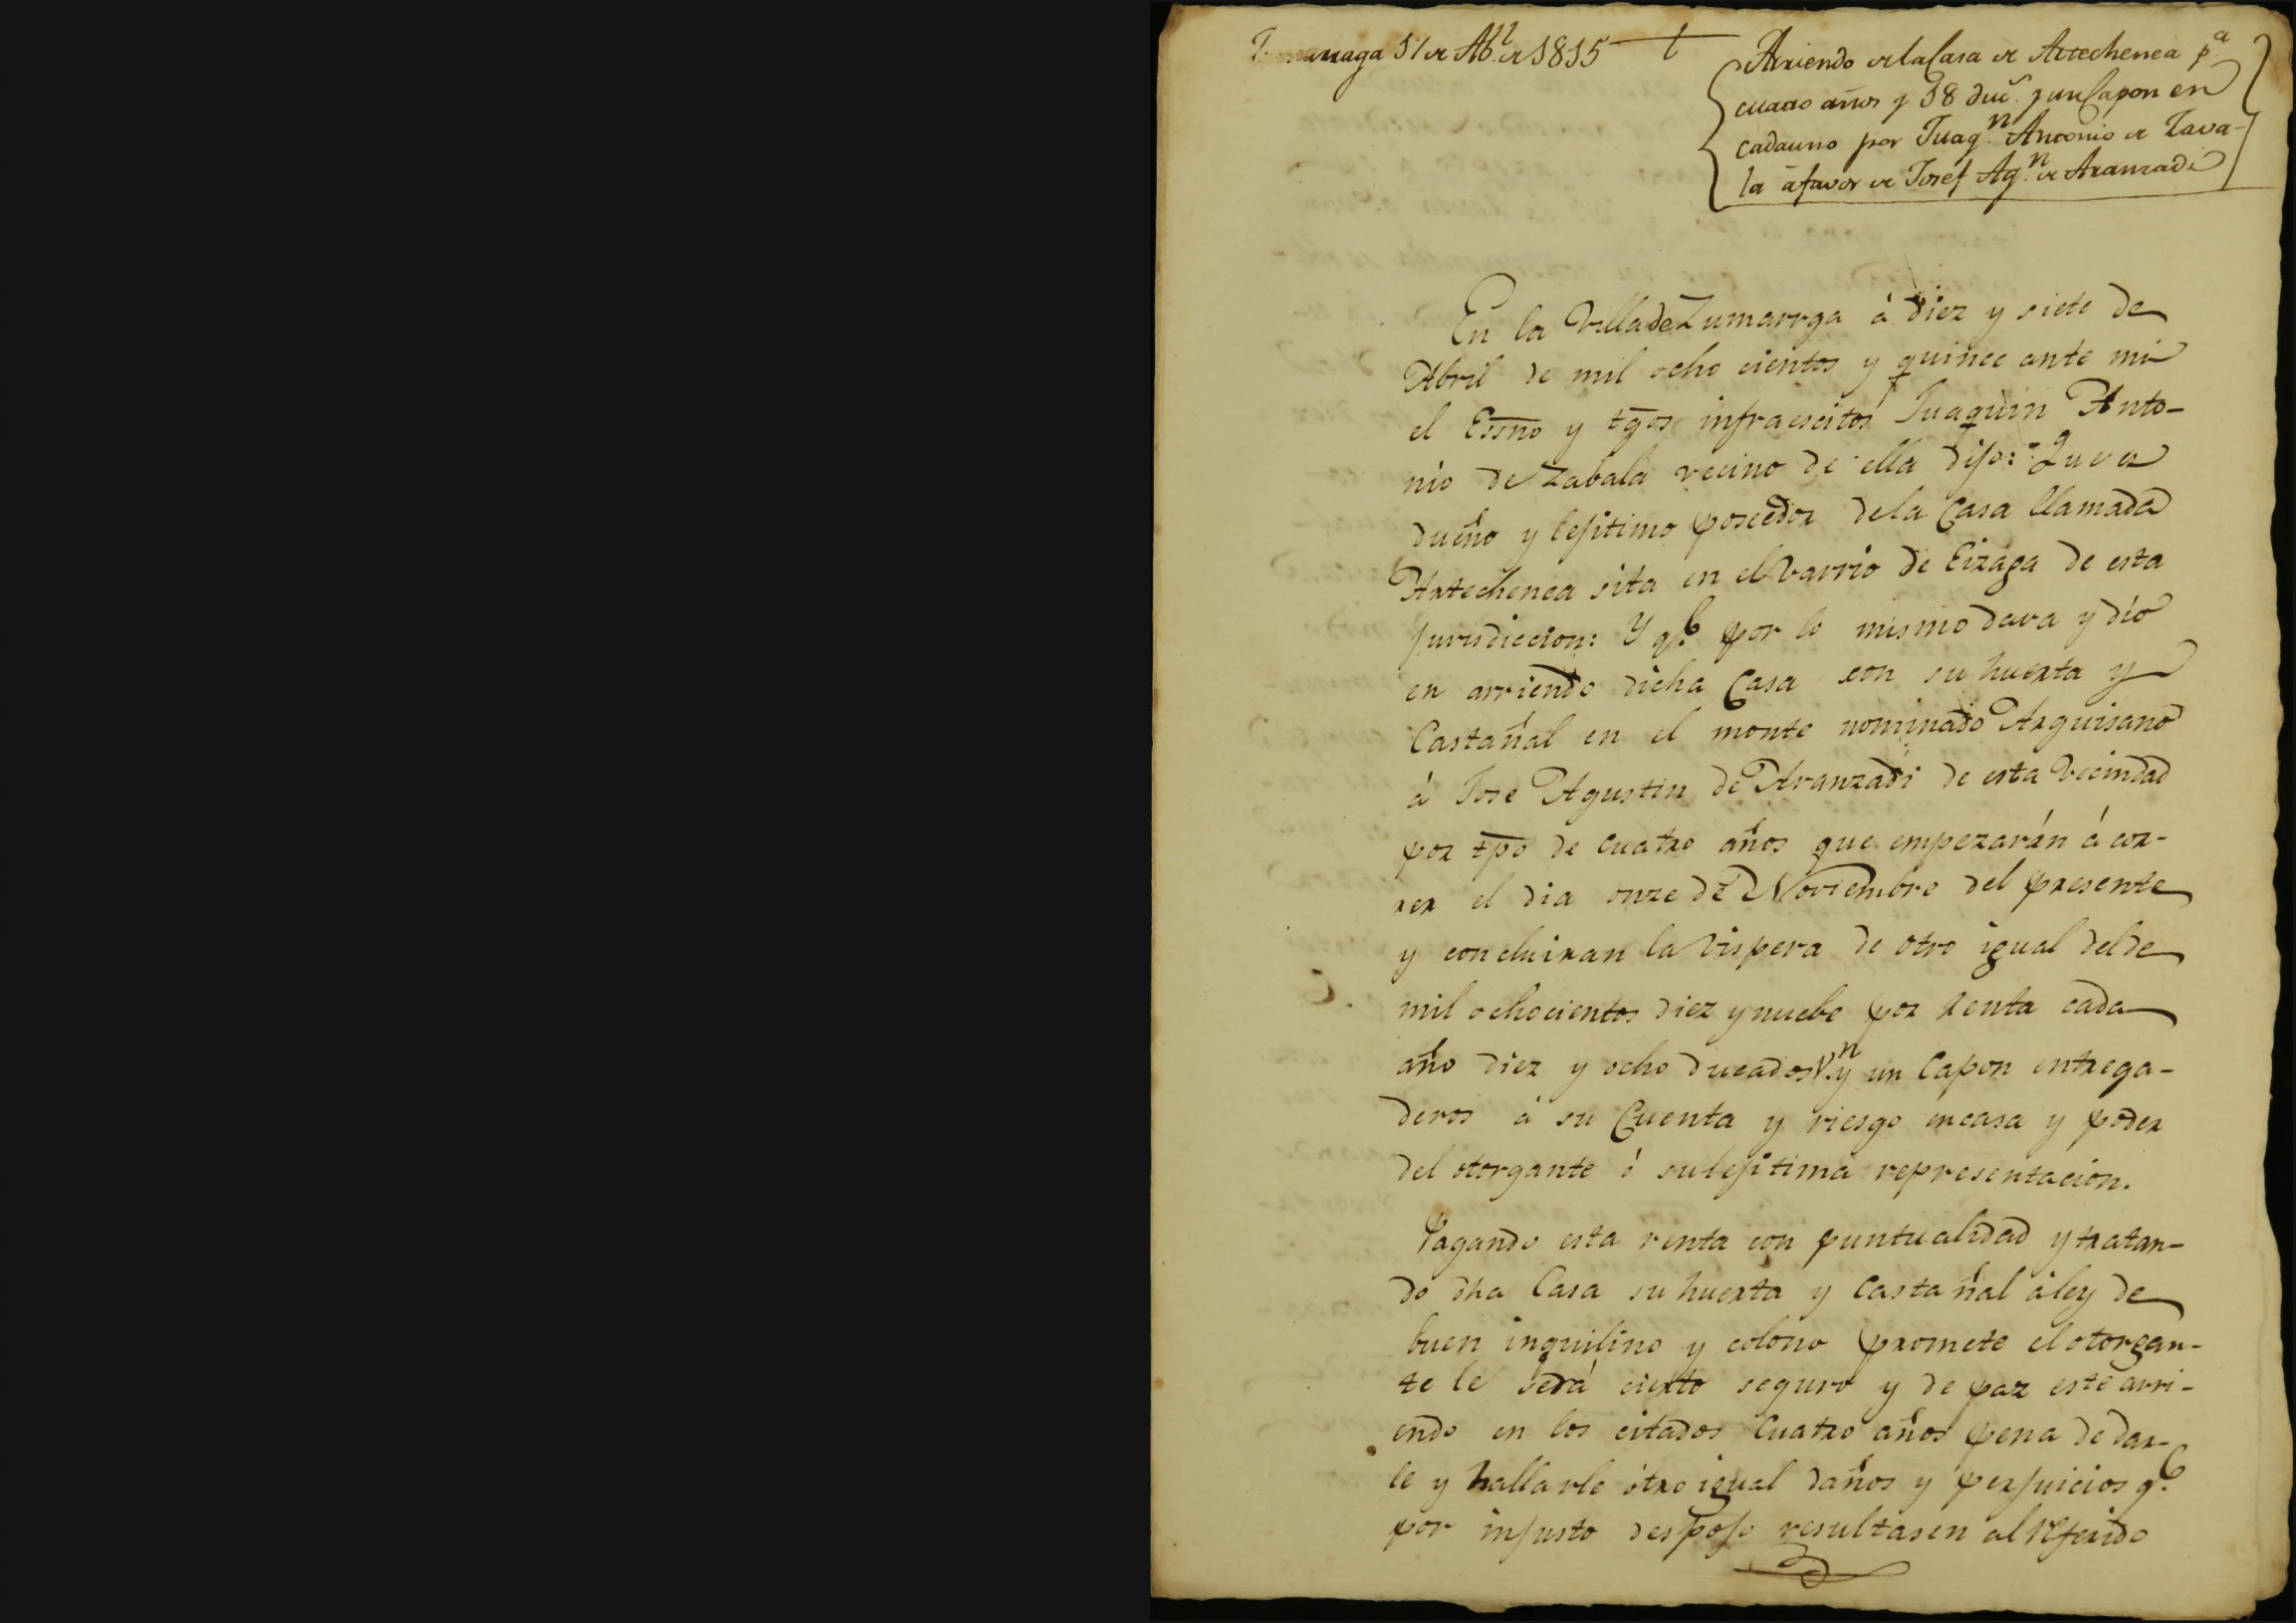 Zumarraga 17 de Abl. de 1815
Arriendo de la Casa de Artechenea pa.
cuatro años y 18 duc.s y un Capon en
cada uno por Juaqn. Antonio de Zava-
la á favor de Josef Agn. de Aranzadi
En la Villa de Zumarrga á diez y siete de
Abril de mil ocho cientos y quince ante mi
el Essno y tgos infraescitos Juaquin Anto-
nio de Zabala vecino de ella dijo: Que es
dueño y lejitimo poseedor dela Casa llamada
Artechenea sita en el varrio de Eizaga de esta
jurisdiccion: Y qe. por lo mismo dava y dió
en arriendo dicha Casa con su huerta y
Castañal en el monte nominado Arguisano
á Jose Agustin de Aranzadi de esta vecindad
por tpo de cuatro años que empezarán á cor-
rer el dia onze de Noviembre del presente
y concluiran la vispera de otro igual del de
mil ochocientos diez y nuebe por renta cada
año diez y ocho ducados Vn. y un Capon entrega-
deros á su Cuenta y riesgo en casa y poder
del otorgante ó su lejitima representacion.
Pagando esta renta con puntualidad y tratan-
do dha Casa su huerta y Castañal á ley de
buen inquilino y colono promete el otorgan-
te le será cierto seguro y de paz este arri-
endo en los citados cuatro años pena de dar-
le y hallarle otro igual daños y perjuicios qe.
por injusto despojo resultasen al referido